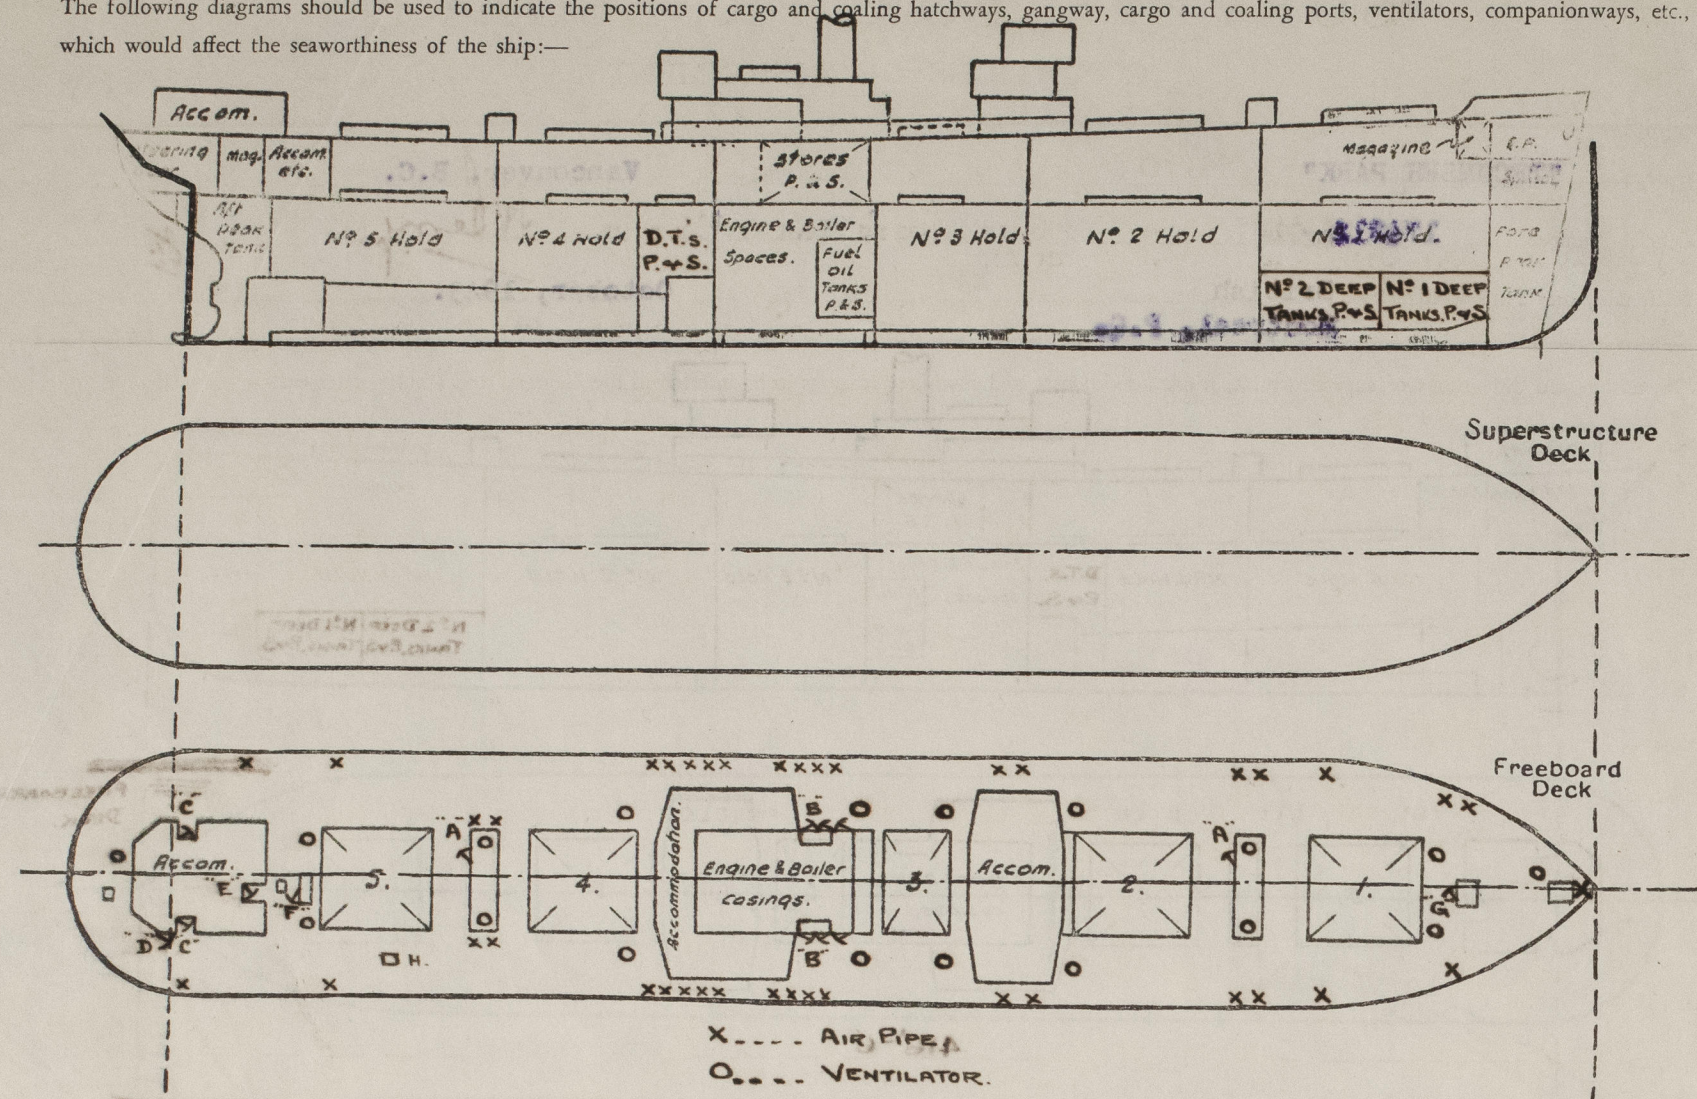 The following diagrams should be used to indicate the positions of cargo and coaling hatchways, gangway, cargo and coaling ports, ventilators, companionways, etc.,
which would affect the seaworthiness of the ship:—
Accom.
Mag.
Accom.
etc.
Stores
P. & S.
Magazine
Aft
Peak
Tank
Nº 5 Hold
Nº 4 Hold
D.T.s.
P. & S.
Engine & Boiler
Spaces.
Fuel
Oil
Tanks
P.&S.
Nº 3 Hold
Nº 2 Hold
Hold.
Fore
Peak
Tank
Nº 2 DEEP
TANKS, P.&S.
Nº 1 DEEP
TANKS, P.&S.
Superstructure
Deck
Freeboard
Deck
C
A
B
A
Accom.
E
F
5.
4.
Accommodation.
Engine & Boiler
Casings.
3.
Accom.
2.
1.
G
D
C
H.
B
X---- AIR PIPE
O---- VENTILATOR.